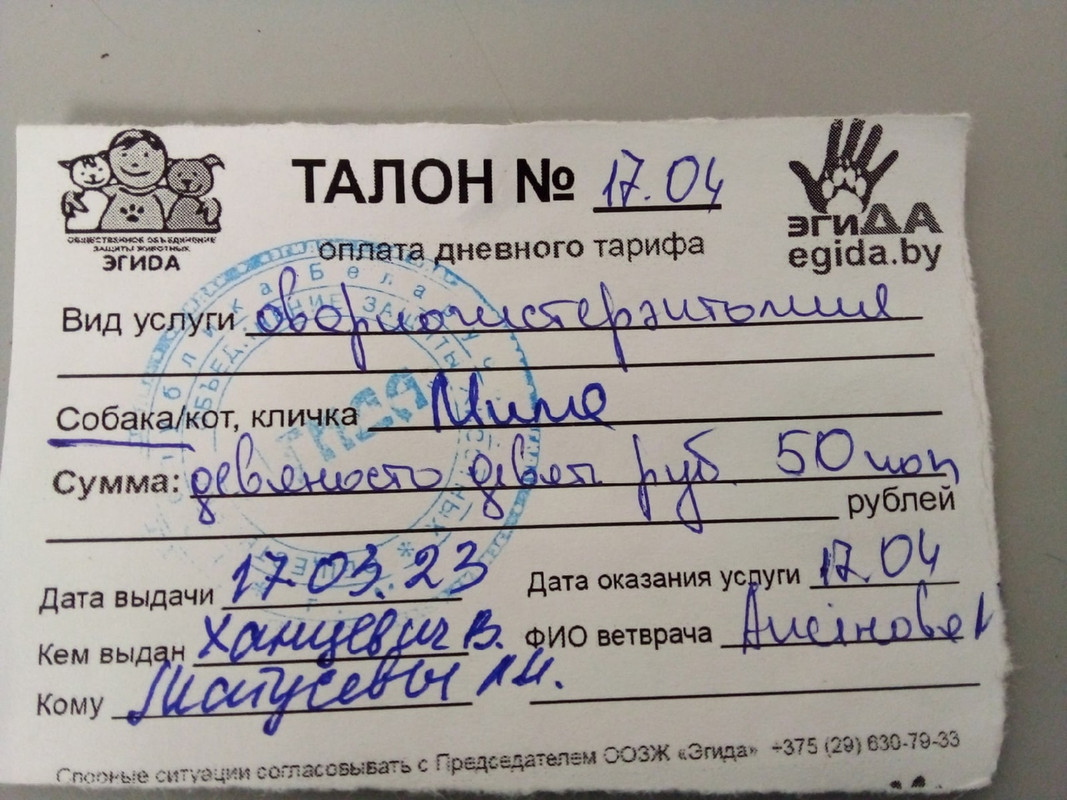 ТАЛОН № 17.04
ОБЩЕСТВЕННОЕ ОБЪЕДИНЕНИЕ
ЗАЩИТЫ ЖИВОТНЫХ
ЭГИДА
эгиДА
egida.by
оплата дневного тарифа
Вид услуги овариогистерэктомия
Собака/кот, кличка
Сумма: девяносто девять руб 50 коп
рублей
Дата выдачи 17.03.23 Дата оказания услуги 17.04
Кем выдан Ханцевич В. ФИО ветврача
Кому
Спорные ситуации согласовывать с Председателем ООЗЖ «Эгида» +375 (29) 630-79-33